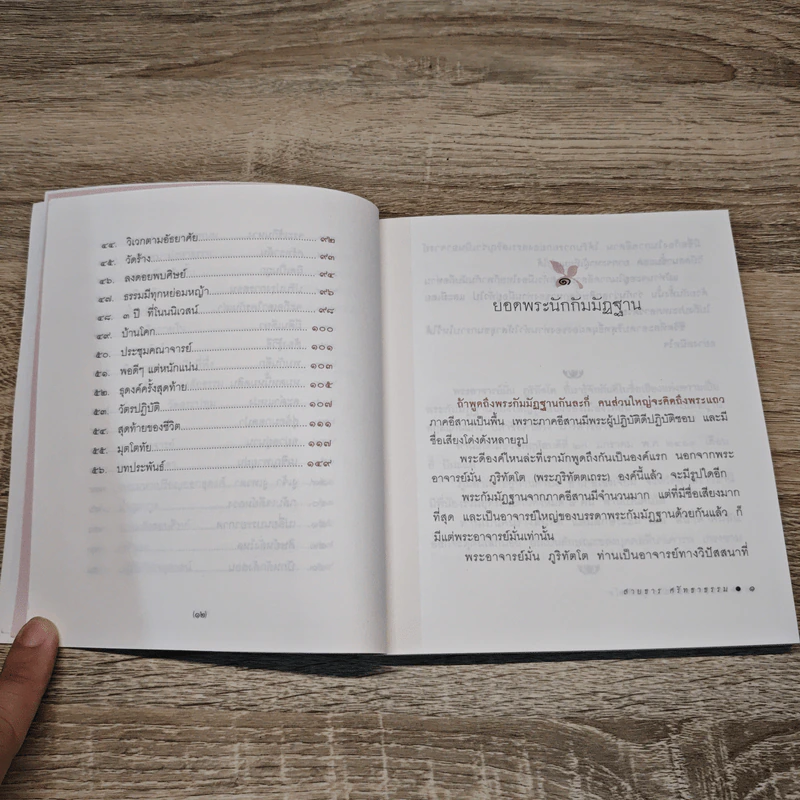 ๔๔. วิเวกตามอัธยาศัย ๙๒
๔๕. วัดร้าง ๙๓
๔๖. ลงดอยพบศิษย์ ๙๔
๔๗. ธรรมมีทุกหย่อมหญ้า ๙๖
๔๘. ๓ ปี ที่โนนนิเวสน์ ๙๘
๔๙. บ้านโคก ๑๐๐
๕๐. ประชุมคณาจารย์ ๑๐๑
๕๑. พอดีๆ แต่หนักแน่น ๑๐๓
๕๒. ธุดงค์ครั้งสุดท้าย ๑๐๕
๕๓. วัตรปฏิบัติ ๑๐๗
๕๔. สุดท้ายของชีวิต ๑๑๑
๕๕. มุตโตทัย ๑๑๗
๕๖. บทประพันธ์ ๑๔๙
(๑๒)
๑
ยอดพระนักกัมมัฏฐาน
ถ้าพูดถึงพระกัมมัฏฐานกันละก็ คนส่วนใหญ่จะคิดถึงพระแถว
ภาคอีสานเป็นพื้น เพราะภาคอีสานมีพระผู้ปฏิบัติดีปฏิบัติชอบ และมี
ชื่อเสียงโด่งดังหลายรูป
พระดีองค์ไหนล่ะที่เรามักพูดถึงกันเป็นองค์แรก นอกจากพระ
อาจารย์มั่น ภูริทัตโต (พระภูริทัตตเถระ) องค์นี้แล้ว จะมีรูปใดอีก
พระกัมมัฏฐานจากภาคอีสานมีจำนวนมาก แต่ที่มีชื่อเสียงมาก
ที่สุด และเป็นอาจารย์ใหญ่ของบรรดาพระกัมมัฏฐานด้วยกันแล้ว ก็
มีแต่พระอาจารย์มั่นเท่านั้น
พระอาจารย์มั่น ภูริทัตโต ท่านเป็นอาจารย์ทางวิปัสสนาที่
สายธาร ศรัทธาธรรม ● ๑